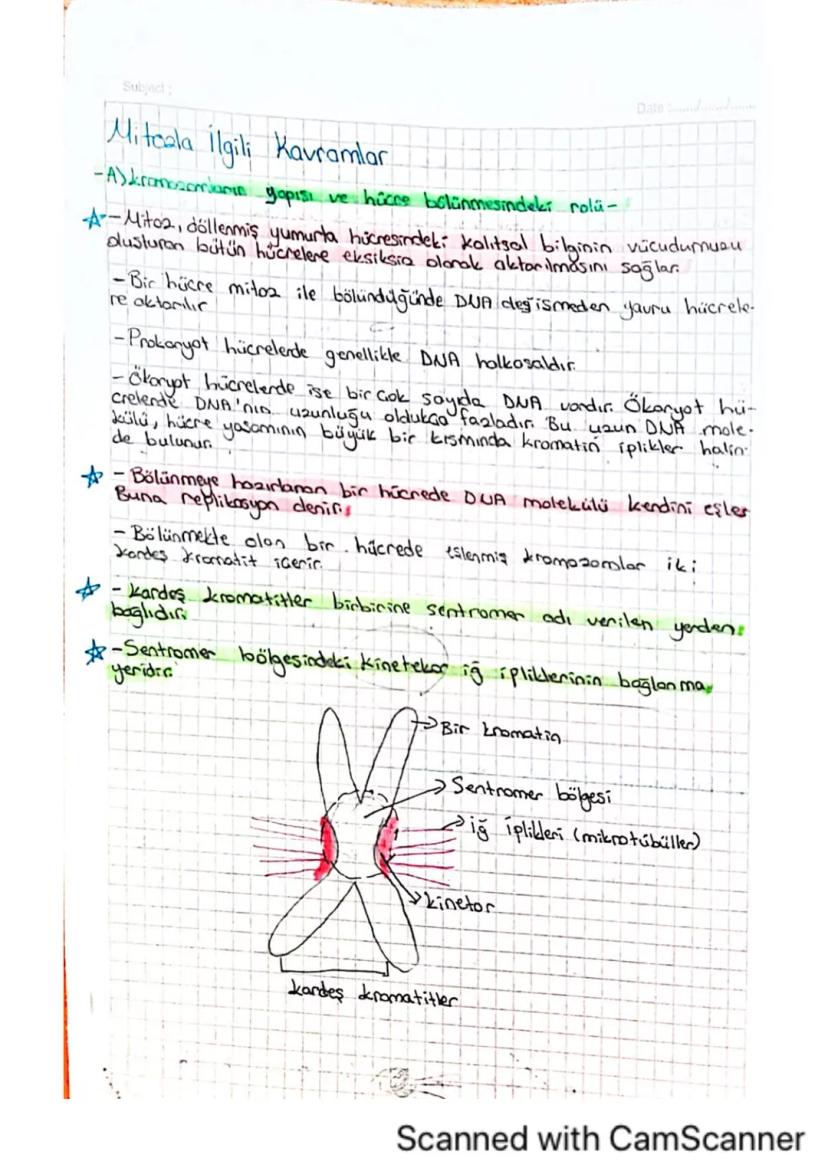 Subject :
Date :....../....../......
Mitozla İlgili Kavramlar
-A) kromozomların yapısı ve hücre bölünmesindeki rolü-
- Mitoz, döllenmiş yumurta hücresindeki kalıtsal bilginin vücudumuzu
oluşturan bütün hücrelere eksiksiz olarak aktarılmasını sağlar.
- Bir hücre mitoz ile bölündüğünde DNA değişmeden yavru hücrele-
re aktarılır
- Prokaryot hücrelerde genellikle DNA halkasaldır.
- Ökaryot hücrelerde ise bir çok sayıda DNA vardır. Ökaryot hü-
crelerde DNA'nın uzunluğu oldukça fazladır. Bu uzun DNA mole-
külü, hücre yaşamının büyük bir kısmında kromatin iplikler halin-
de bulunur.
- Bölünmeye hazırlanan bir hücrede DNA molekülü kendini eşler
Buna replikasyon denir.
- Bölünmekte olan bir hücrede eşlenmiş kromozomlar iki
kardeş kromatit içerir.
- kardeş kromatitler birbirine sentromer adı verilen yerden
bağlıdır.
- Sentromer bölgesindeki kinetekor iğ ipliklerinin bağlanma
yeridir.
Bir kromatin
Sentromer bölgesi
iğ iplikleri (mikrotübüller)
kinetor
kardeş kromatitler
Scanned with CamScanner